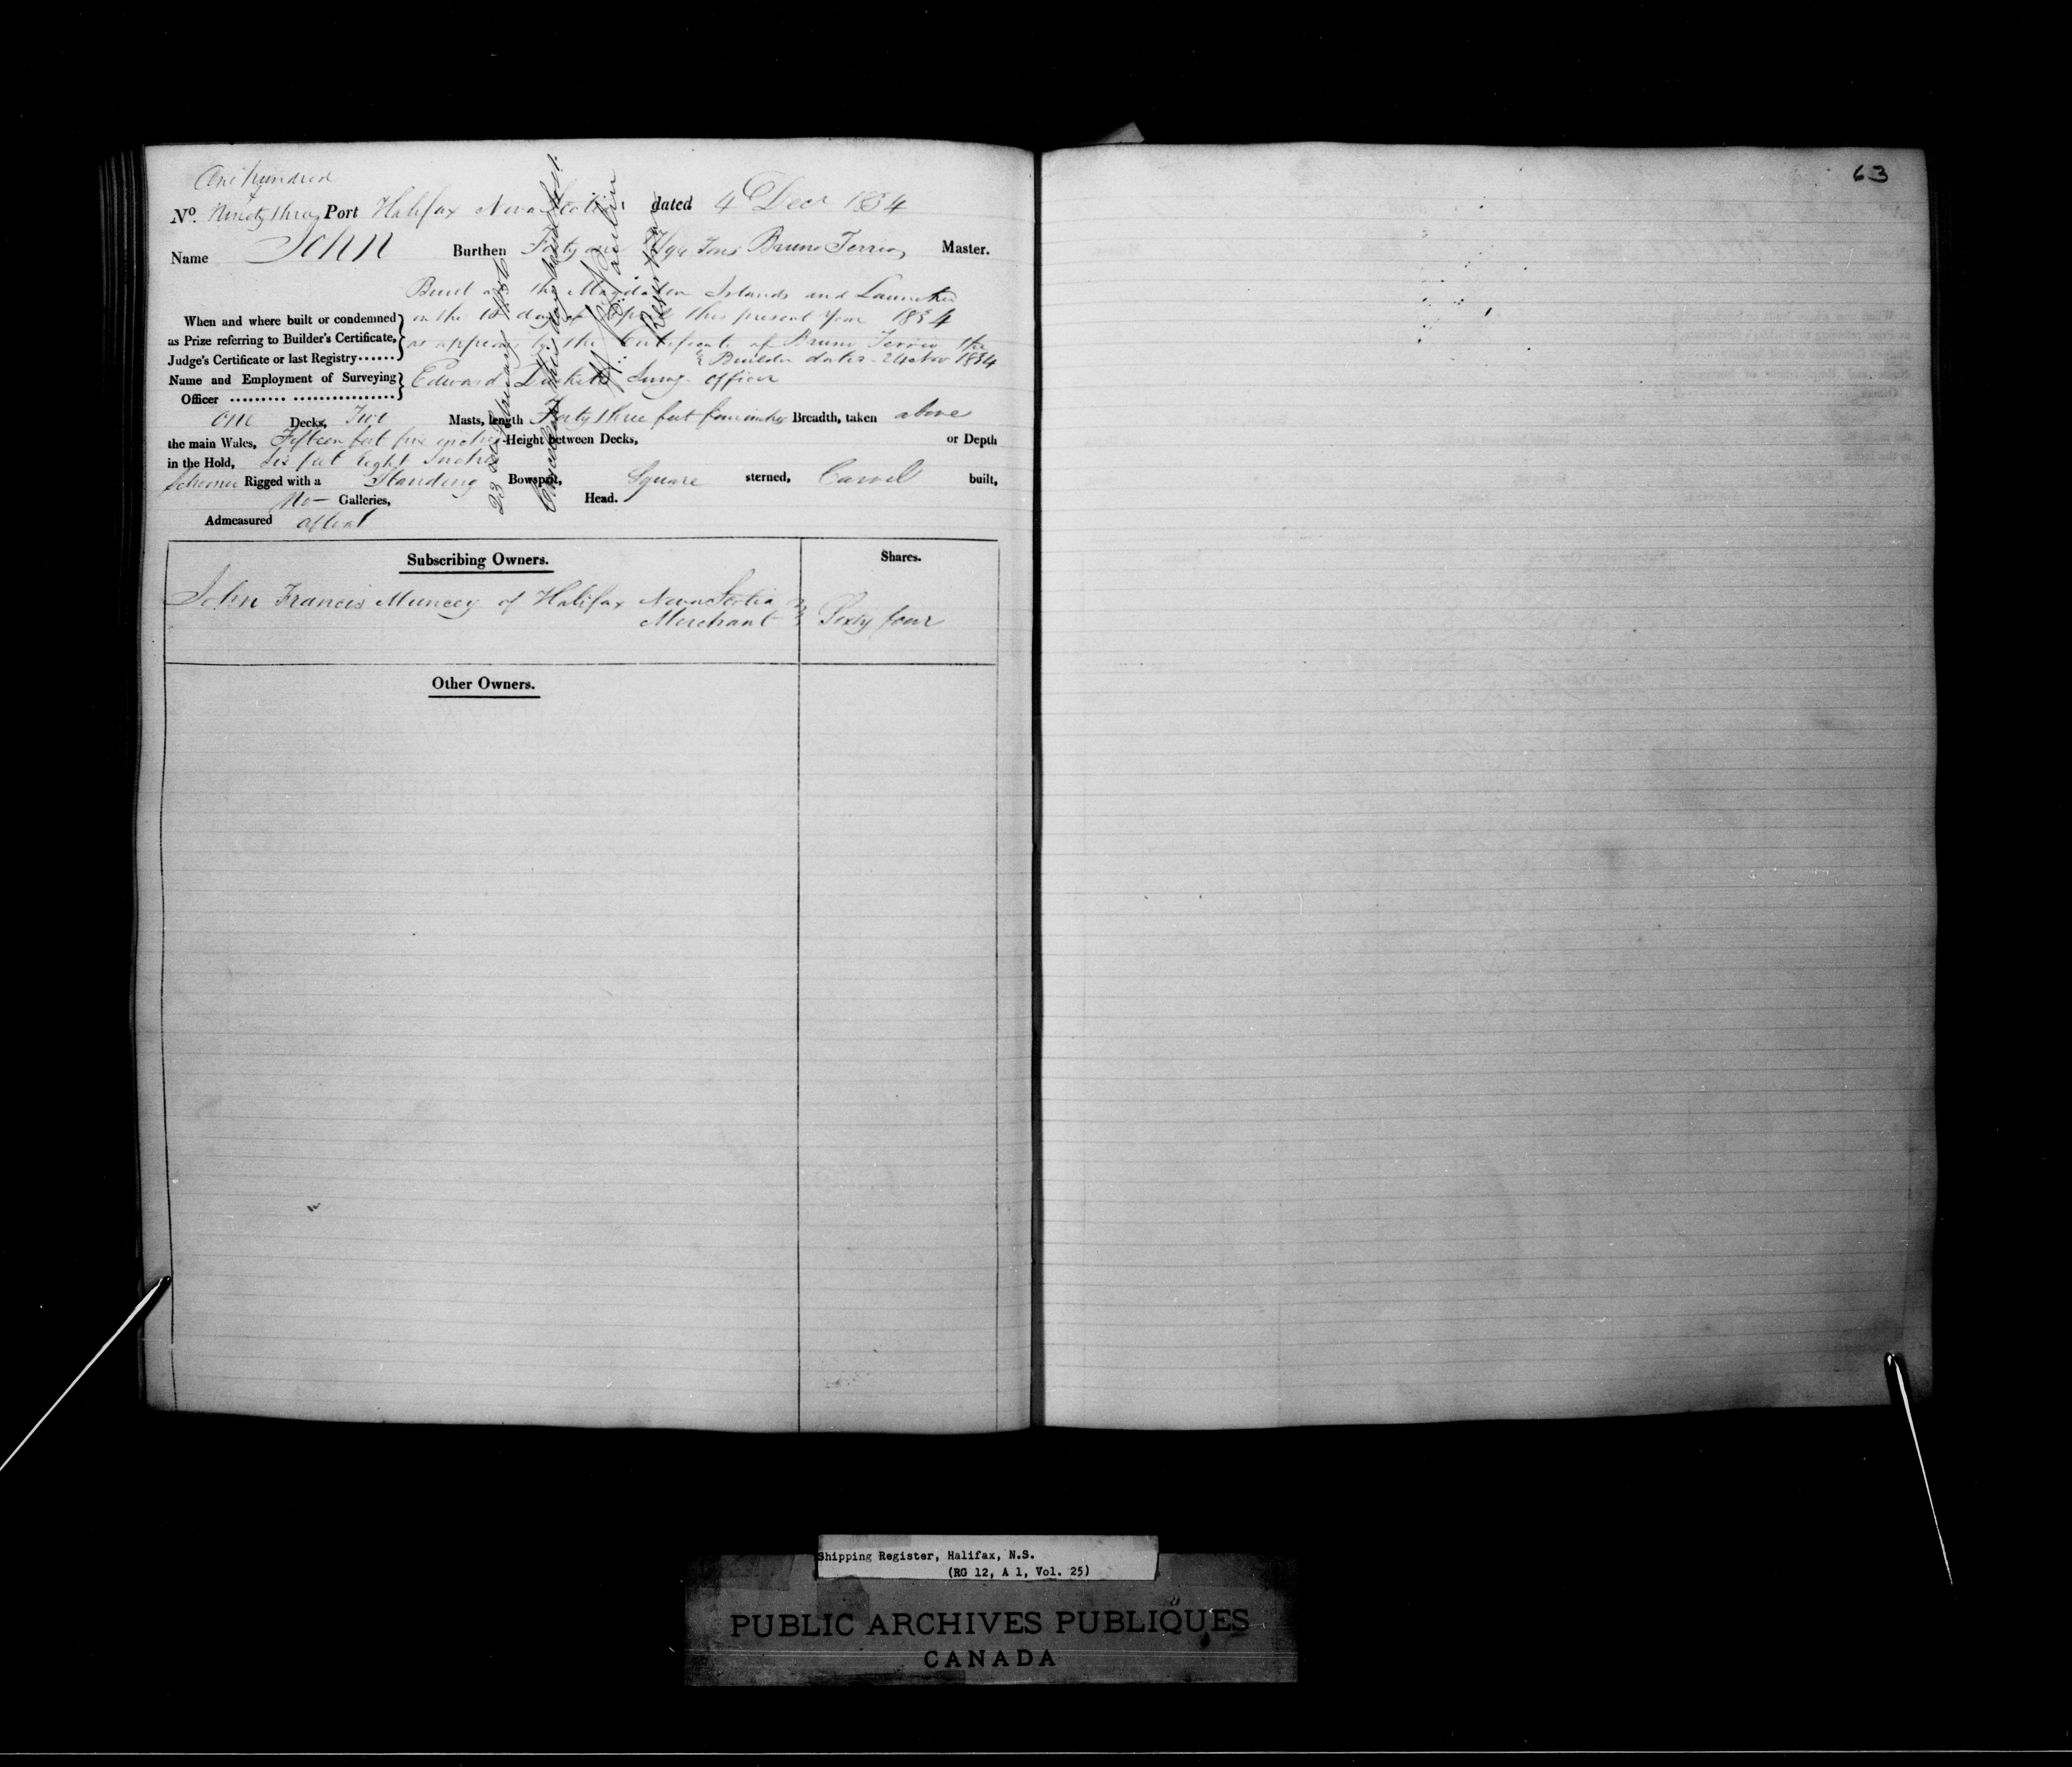 One hundred
No. Ninety three Port Halifax Nova Scotia dated 4 Decr 1834
Name John Burthen Forty one /94 Tons Bruno Terrio Master.
Built at the Magdalen Islands and Launched
When and where built or condemned on the 10 day of this present Year 1834
as Prize referring to Builder's Certificate, as appears by the Certificate of Bruno Terrio the
Judge's Certificate or last Registry...... Builder dated 24 Nov 1834
Name and Employment of Surveying Edward Surv'g officer
Officer ......... ................
One Decks, Two Masts, length Forty three feet four inches Breadth, taken above
the main Wales, Fifteen feet five inches Height between Decks, or Depth
in the Hold, Six feet Eight Inches
Schooner Rigged with a Standing Bowsprit, Square sterned, Carvel built,
No — Galleries, Head.
Admeasured afloat
23 1836
Cancelled
Registrar
Subscribing Owners. Shares.
John Francis Muncey of Halifax Nova Scotia
Merchant Sixty four
Other Owners.
63
Shipping Register, Halifax, N.S.
(RG 12, A 1, Vol. 25)
PUBLIC ARCHIVES PUBLIQUES
CANADA